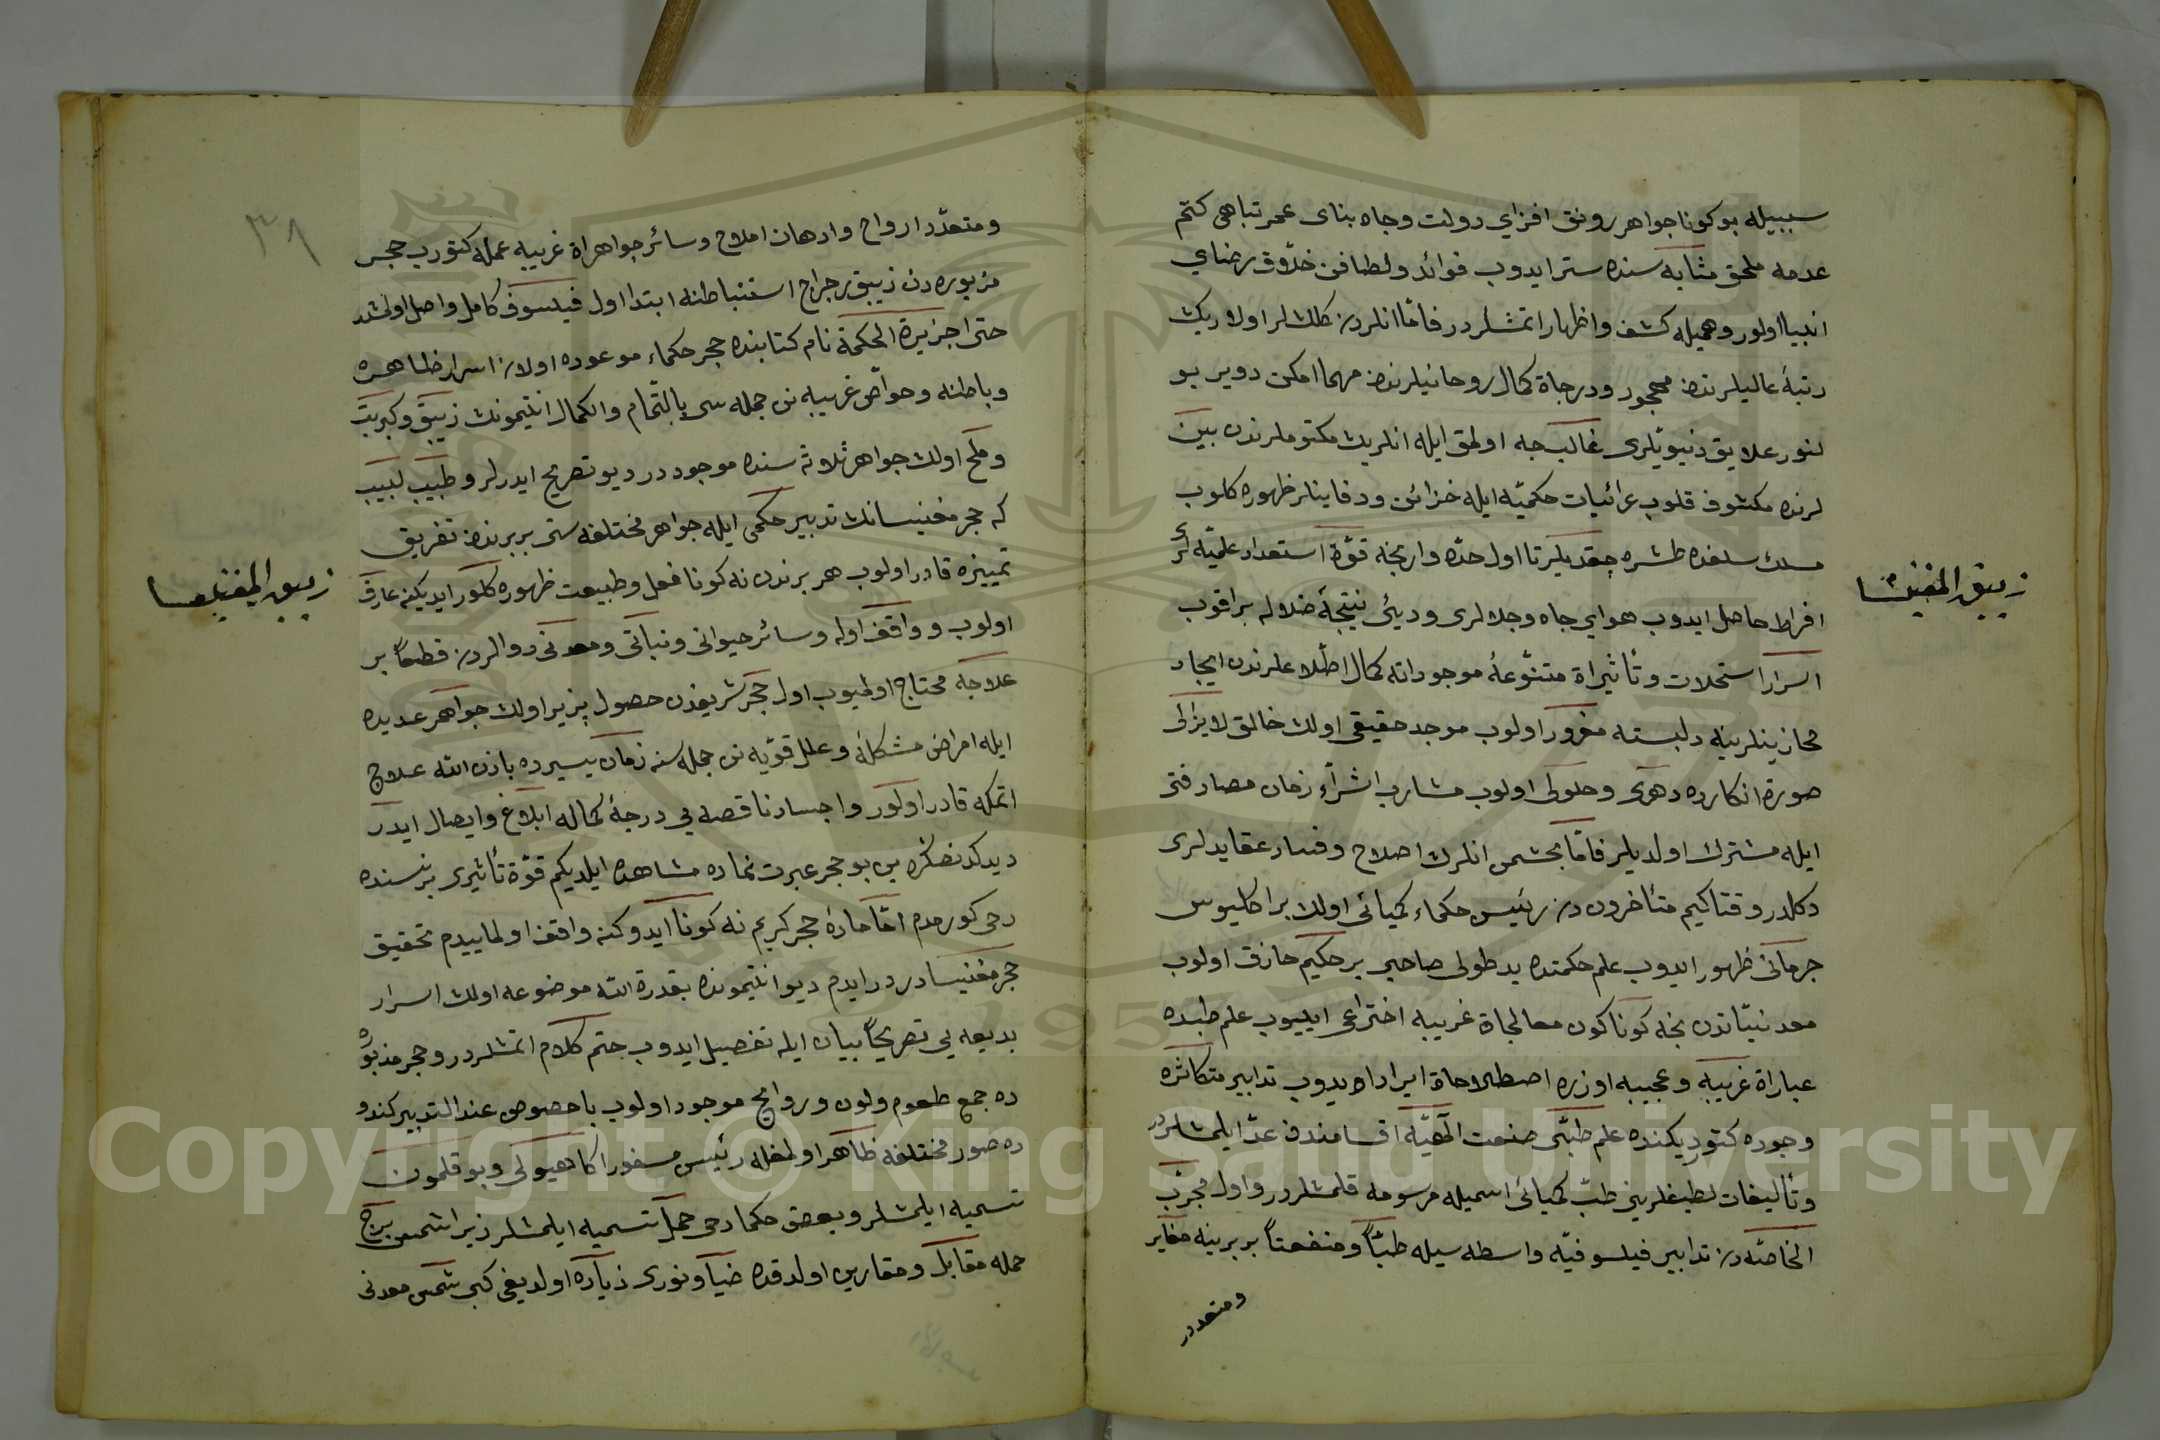 سببيله بو كونا جواهر رونق افزاي دولت وجاه بناى عمر تباهى كتم
عدمه ملحق مثابه سنده ستر ايدوب فوائد ولطافن خلاّق رضاي
انبيا اولور وهميله كشف واظهار اتمشلردر فامّا انلردن كلك لر اولا ريك
رتبۀ عاليلرندن مهجور ودرجاة كمال روحانيلرندن مهما امكن دوير بو
لنور علايق دنيويّلرى غالب جه اولمق ايله انلريك مكتوملرندن بين
لرنده مكشوف قلوب عرائيات حكميّه ايله خزائن ودفاينلر ظهوره كلوب
مسلك سلفده طشره چقديلر تا اول حدّه وارنجه قوّة استعداد علميّه لرى
افراط حاصل ايدوب هواي جاه وجلالرى وديئى نتيجۀ ضلاله براقوب
اسرار استحلات وتأثيراة متنوّعۀ موجوداته كمال اطّلاعلرندن ايجاد
مجازيلرينه دلبسته مغرور اولوب موجد حقيقى اولك خالق لايزالى
صورة انكارده دهرى وحلولى اولوب مشارب اشراء زمان مصادفتى
ايله مشترك اولديلر فامّا بحثمن انلرك اصلاح وفساد عقايدلرى
دكلدر وقتاكيم متأخرون دن رئيس حكماء كميائى اولك براكليوس
جرمانى ظهور ايدوب علم حكمتده يد طولى صاحبى بر حكيم حاذق اولوب
معدنيّاتدن نجه كوناكون معالجاة غريبه اختراعى ايليوب علم طبده
عباراة غريبه وعجيبه اوزره اصطلاحاة ايراد ايدوب تدابير متكاثره
وجوده كتورديكنده علم طبّى صنعت الٓهيّه اقسامندن عدّ ايلمشلردر
وتأليفات لطيفلرينى طبّ كميائى اسميله مرسومه قلمشلردر واول مجرّب
الخاصّه دن تدابير فيلسوفيّه واسطه سيله طبّاً ومنفعتاً بربرينه مغاير
ومتعدد
زيبق المغنيسا
٣٨
ومتعدّد ارواح وادهان املاح وسائر جواهراة غريبه عمله كتورب حجر
مزبوره دن زيبق رجراج استنباطنه ابتدا اول فيلسوف كامل واصل اولمشدر
حتى جزيرة الحكمة نام كتابنده حجر حكماء موعوده اولان اسرار ظاهره
وباطنه وخواّص غريبه نن جمله سى بالتّمام والكمال انتيمونك زيبق وكبريت
وملح اولك جواهر ثلاثه سنده موجوددر ديو تصريح ايدرلر وطبيب لبيب
كه حجر مغنيسانك تدبير حكمى ايله جواهر مختلفه سنى بربرندن تفريق
تمييزه قادر اولوب هر برندن نه كونا فعل وطبيعت ظهوره كلور ايديكنه عارف
اولوب وواقف اوله وسائر حيوانى ونباتى ومعدنى دوالردن قطعاً بر
علاجه محتاج اولميوب اول حجر شريفدن حصول پذير اولك جواهر عديده
ايله امراض مشكلۀ وعلل قويّه نن جمله سنه زمان يسيرده باذن الله علاج
اتمكه قادر اولور واجساد ناقصه يي درجۀ كماله ابلاغ وايصال ايدر
ديدكدنصكره بن بو حجر عبرت نماده مشاهده ايلديكم قوّة تأثيرى برنسنده
دحى كورمدم امّا مادۀ حجر كريم نه كونا ايدوكنه واقف اولماييدم تحقيق
حجر مغنيسادر در ايدم ديو انتيمونده بقدرة الله موضوعه اولك اسرار
بديعه يى تصريحاً بيان ايله تفصيل ايدوب ختم كلام اتمشلردر وحجر مزبوره
ده جمع طعوم ولون وروايح موجود اولوب باخصوص عند التدبير كندو
ده صور مختلفه ظاهر اولمغله رئيس مسفور اكا هيولى وبوقلمون
تسميه ايلمشلر وبعض حكما دحى حمل تسميه ايلمشلر زيرا شمس برج
حمله مقابل ومقارين اولدقده ضياء ونورى زياده اولديغى كبى شمس معدنى
زيبق المغنيسا